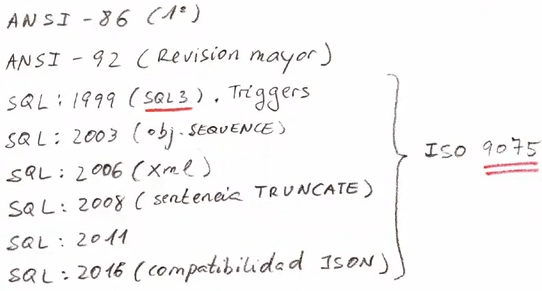 ANSI - 86 (1º)
ANSI - 92 (Revision mayor)
SQL: 1999 (SQL3). Triggers
SQL: 2003 (obj. SEQUENCE)
SQL: 2006 (Xml)
SQL: 2008 (sentencia TRUNCATE)
SQL: 2011
SQL: 2016 (compatibilidad JSON)
ISO 9075